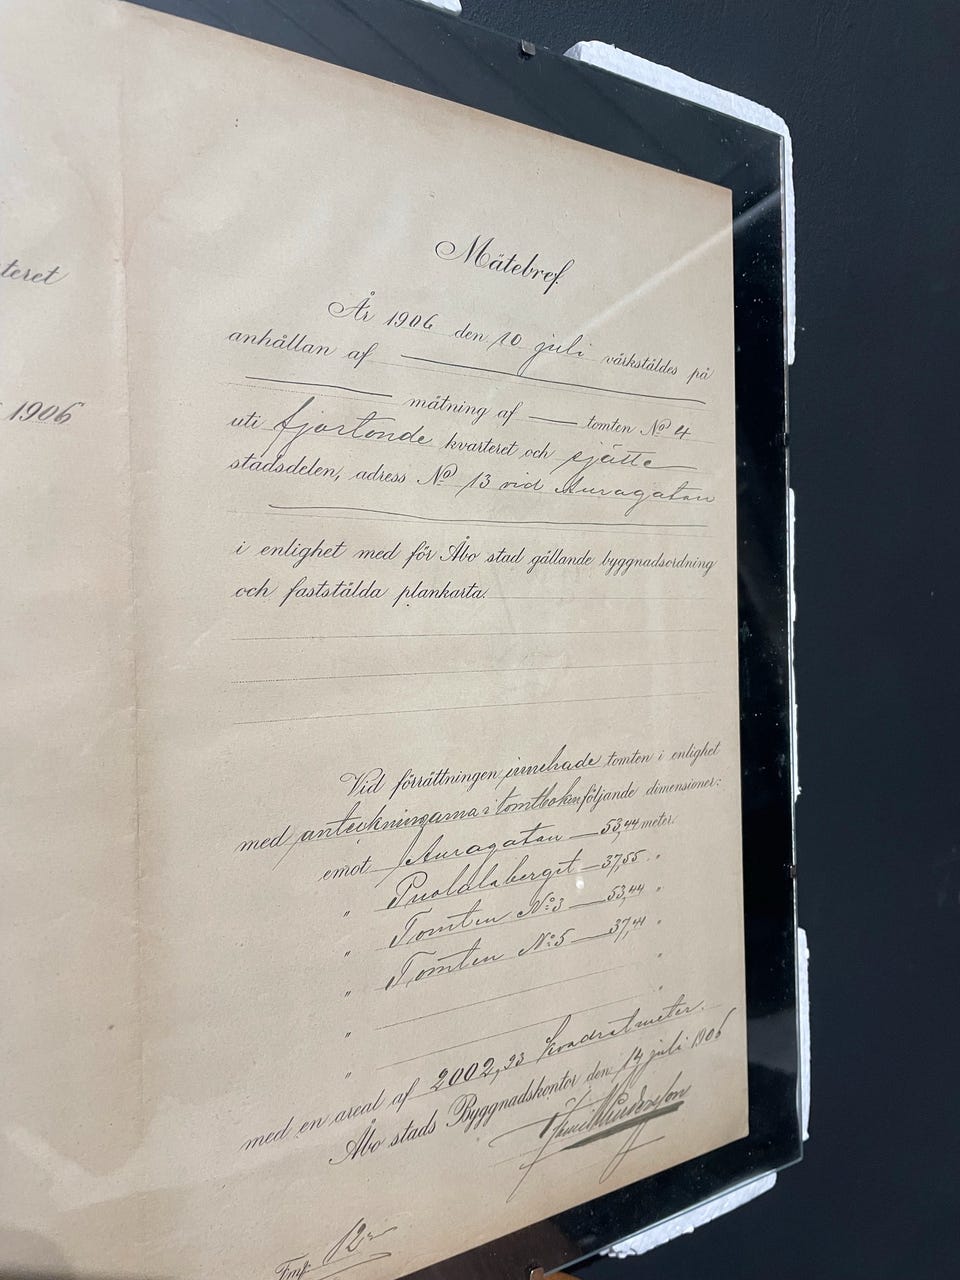 teret
1906
Mätebref.
År 1906 den 10 juli värkstäldes på
anhållan af
mätning af tomten No 4
uti fjortonde kvarteret och sjätte
stadsdelen, adress No 13 vid Auragatan
i enlighet med för Åbo stad gällande byggnadsordning
och faststälda plankarta.
Vid förrättningen innehade tomten i enlighet
med anteckningarna i tomtboken följande dimensioner:
emot Auragatan — 53,44 meter.
" Puolalaberget — 37,55 "
" Tomten No 3 — 53,44 "
" Tomten No 5 — 37,41 "
" "
"
med en areal af 2002,93 kvadratmeter.
Åbo stads Byggnadskontor den 14 juli 1906
12